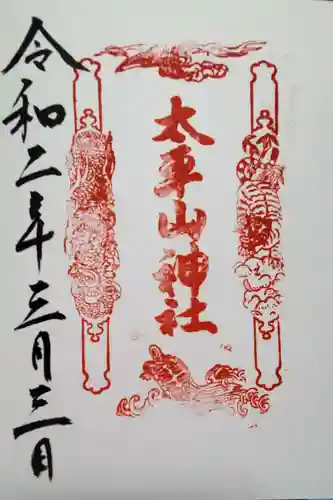 太平山神社
令和二年三月三日